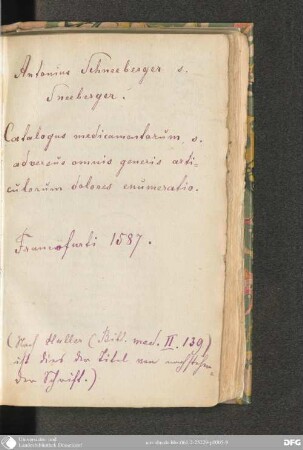 Antonius Schneeberger s.
Sneeberger.
Catalogus medicamentorum, s.
adversus omnis generis arti-
culorum dolores enumeratio.
Francofurti 1587.
(Nach Haller (Bibl. med. II. 139)
ist dies der Titel von nachstehen-
der Schrift.)
Universitäts- und
Landesbibliothek Düsseldorf
DFG